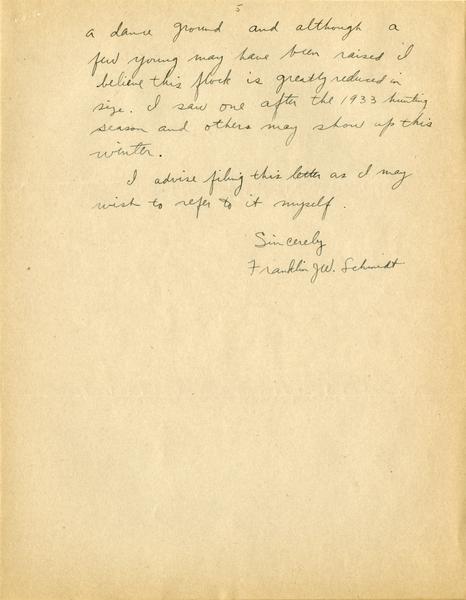 5
a dance ground and although a
few young may have been raised I
believe this flock is greatly reduced in
size. I saw one after the 1933 hunting
season and others may show up this
winter.
I advise filing this letter as I may
wish to refer to it myself.
Sincerely
Franklin J.W. Schmidt